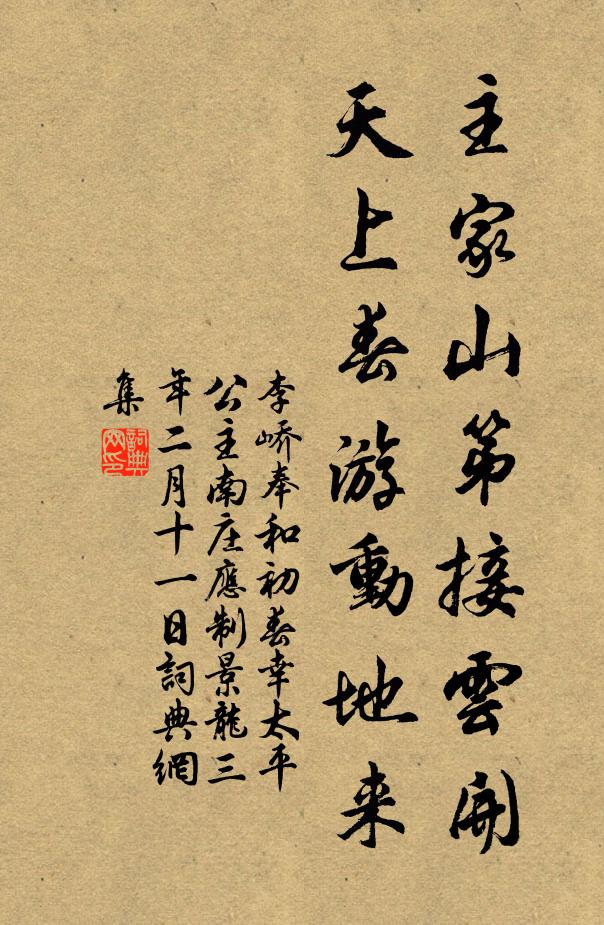 主家山第接雲開
天上春游動地来
李嶠奉和初春幸太平
公主南庄應制景龍三
年二月十一日詞典網
集
詞典
网印